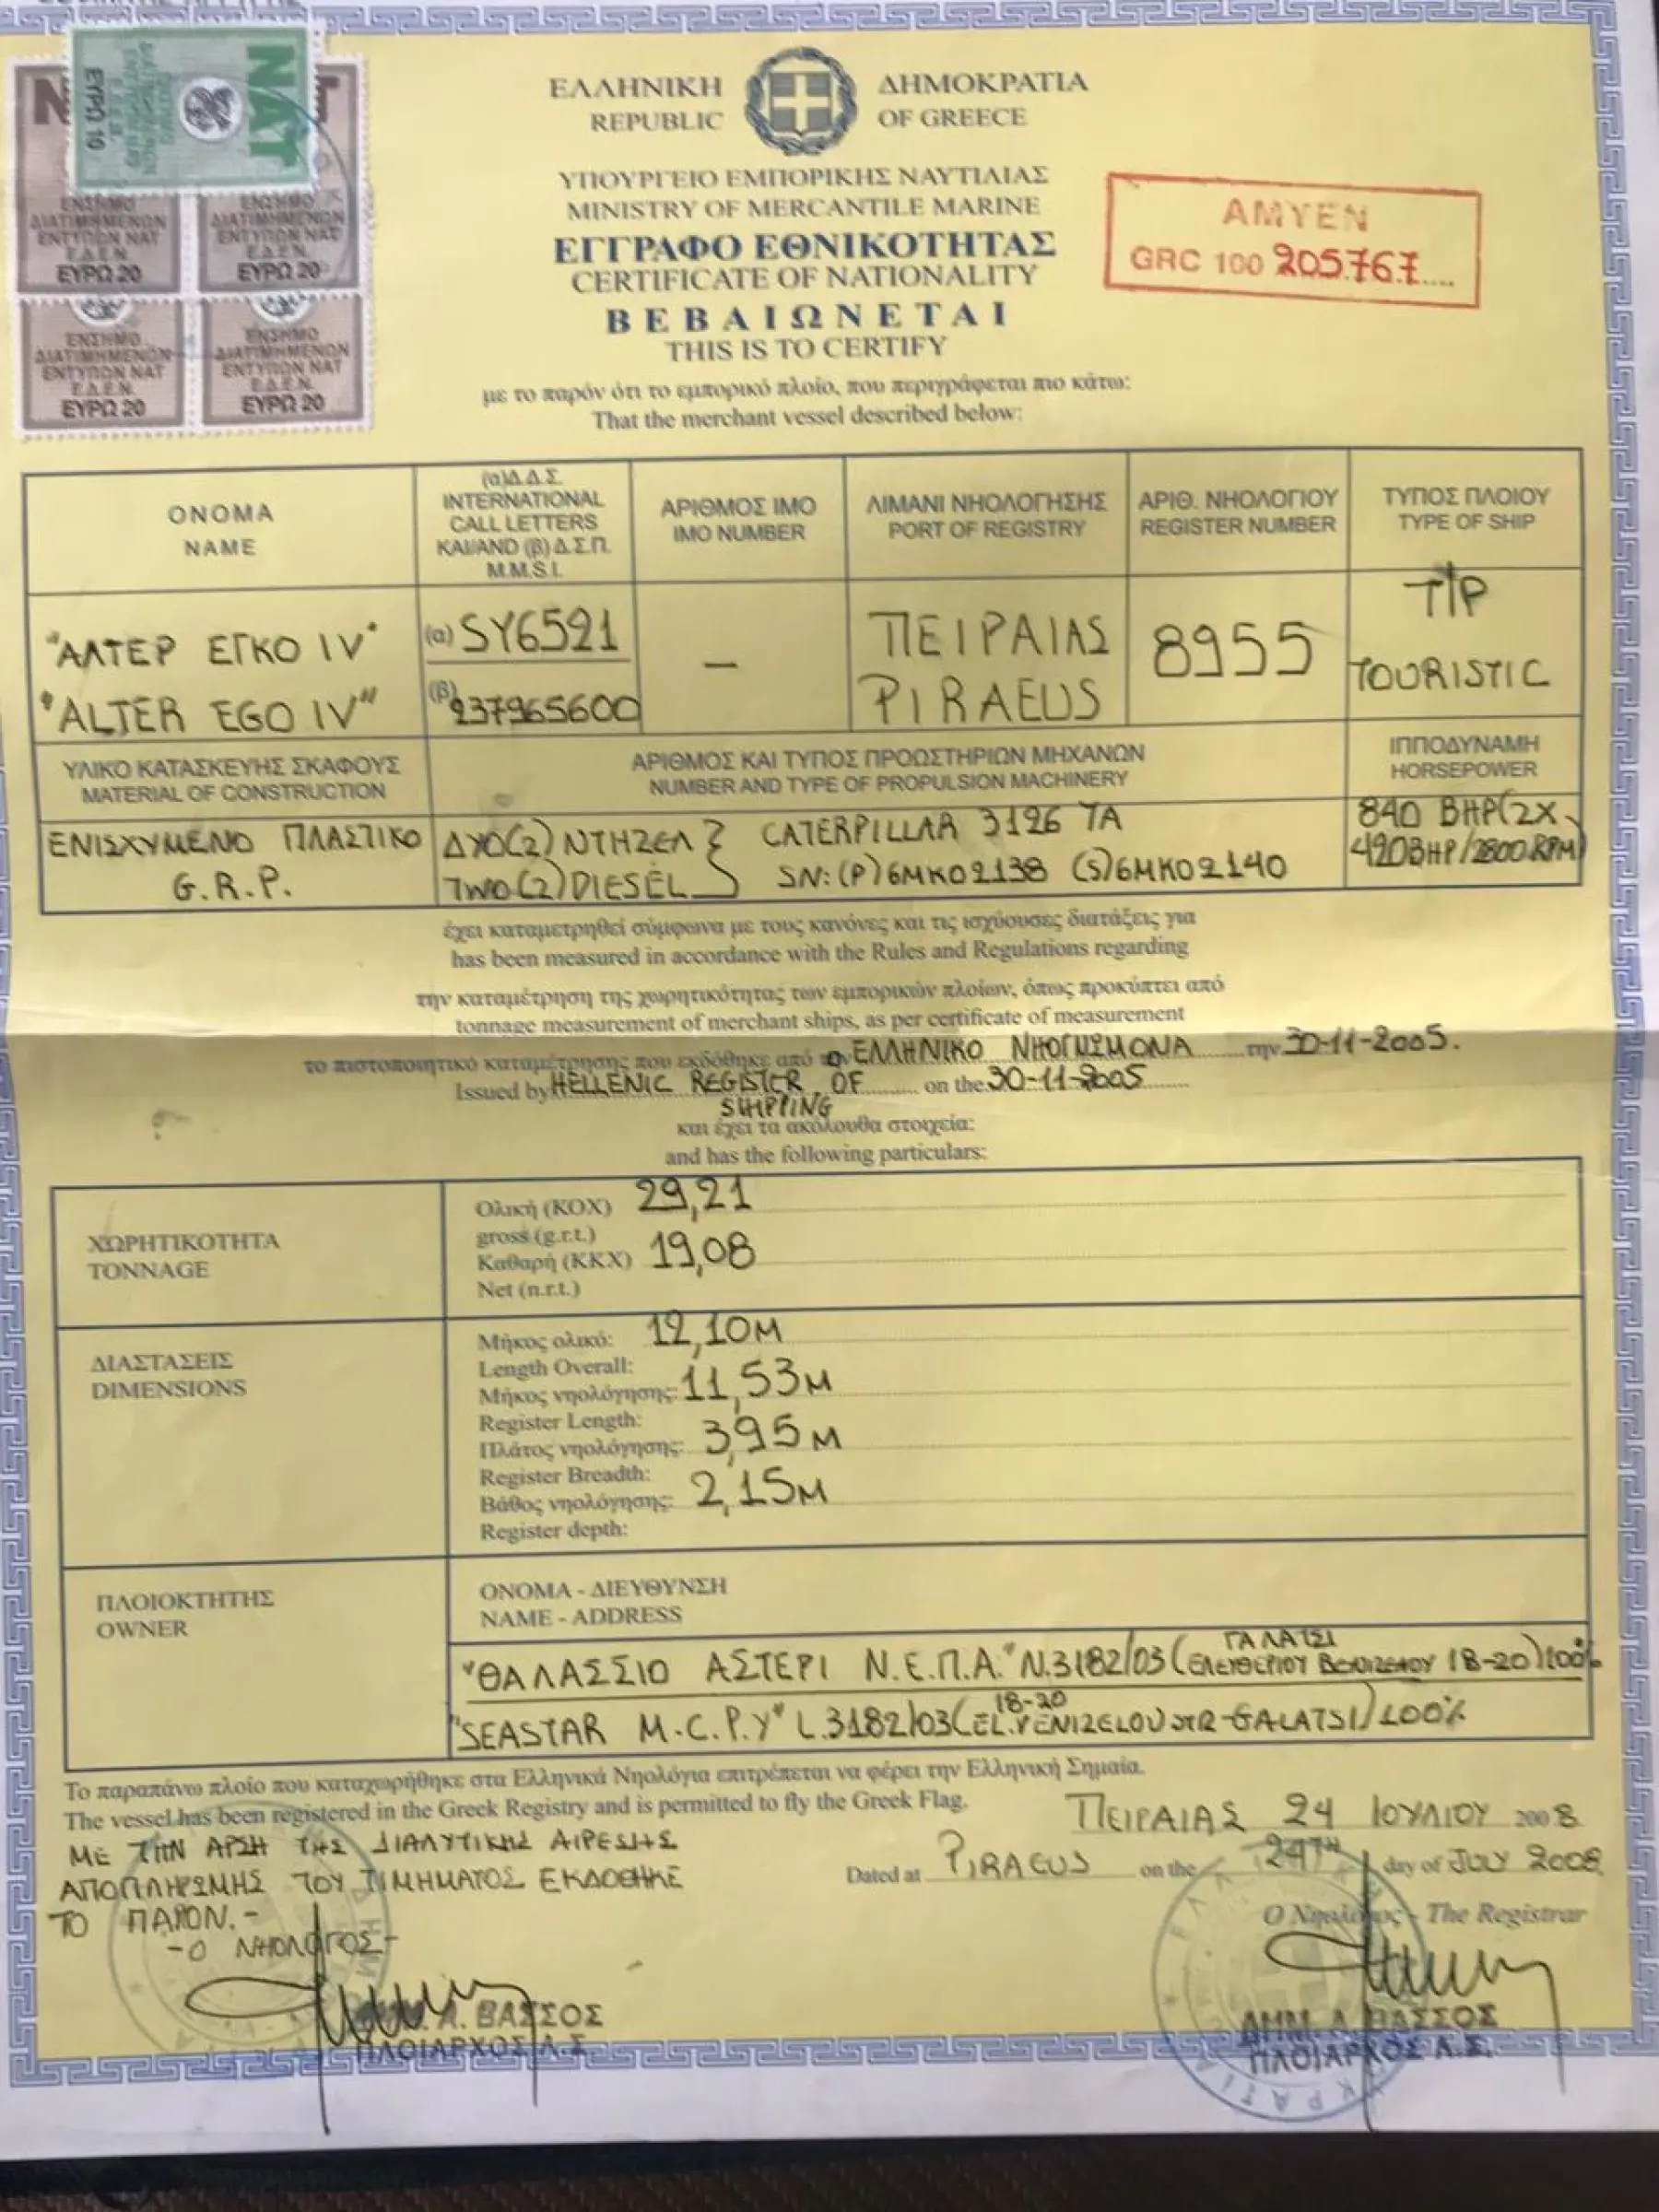 ΝΑΤ
ΕΥΡΩ 10
ΕΝΣΗΜΟ
ΔΙΑΤΙΜΗΜΕΝΩΝ
ΕΝΤΥΠΩΝ ΝΑΤ
Ε.Δ.Ε.Ν.
ΕΥΡΩ 20
ΕΝΣΗΜΟ
ΔΙΑΤΙΜΗΜΕΝΩΝ
ΕΝΤΥΠΩΝ ΝΑΤ
Ε.Δ.Ε.Ν.
ΕΥΡΩ 20
ΕΝΣΗΜΟ
ΔΙΑΤΙΜΗΜΕΝΩΝ
ΕΝΤΥΠΩΝ ΝΑΤ
Ε.Δ.Ε.Ν.
ΕΥΡΩ 20
ΕΝΣΗΜΟ
ΔΙΑΤΙΜΗΜΕΝΩΝ
ΕΝΤΥΠΩΝ ΝΑΤ
Ε.Δ.Ε.Ν.
ΕΥΡΩ 20
ΕΛΛΗΝΙΚΗ ΔΗΜΟΚΡΑΤΙΑ
REPUBLIC OF GREECE
ΥΠΟΥΡΓΕΙΟ ΕΜΠΟΡΙΚΗΣ ΝΑΥΤΙΛΙΑΣ
MINISTRY OF MERCANTILE MARINE
ΕΓΓΡΑΦΟ ΕΘΝΙΚΟΤΗΤΑΣ
CERTIFICATE OF NATIONALITY
ΒΕΒΑΙΩΝΕΤΑΙ
THIS IS TO CERTIFY
ΑΜΥΕΝ
GRC 100 205767....
με το παρόν ότι το εμπορικό πλοίο, που περιγράφεται πιο κάτω:
That the merchant vessel described below:
ΟΝΟΜΑ
NAME
(α)Δ.Δ.Σ.
INTERNATIONAL
CALL LETTERS
ΚΑΙ/AND (β) Δ.Σ.Π.
M.M.S.I.
ΑΡΙΘΜΟΣ ΙΜΟ
IMO NUMBER
ΛΙΜΑΝΙ ΝΗΟΛΟΓΗΣΗΣ
PORT OF REGISTRY
ΑΡΙΘ. ΝΗΟΛΟΓΙΟΥ
REGISTER NUMBER
ΤΥΠΟΣ ΠΛΟΙΟΥ
TYPE OF SHIP
"ΑΛΤΕΡ ΕΓΚΟ IV"
"ALTER EGO IV"
(α) SY6521
(β) 237965600
—
ΠΕΙΡΑΙΑΣ
PIRAEUS
8955
Τ/Ρ
TOURISTIC
ΥΛΙΚΟ ΚΑΤΑΣΚΕΥΗΣ ΣΚΑΦΟΥΣ
MATERIAL OF CONSTRUCTION
ΑΡΙΘΜΟΣ ΚΑΙ ΤΥΠΟΣ ΠΡΟΩΣΤΗΡΙΩΝ ΜΗΧΑΝΩΝ
NUMBER AND TYPE OF PROPULSION MACHINERY
ΙΠΠΟΔΥΝΑΜΗ
HORSEPOWER
ΕΝΙΣΧΥΜΕΝΟ ΠΛΑΣΤΙΚΟ
G.R.P.
ΔΥΟ(2) ΝΤΗΖΕΛ } CATERPILLAR 3126 TA
TWO(2) DIESEL } SN: (P) 6MK02138 (S) 6MK02140
840 BHP (2X
420BHP/2800 RPM)
έχει καταμετρηθεί σύμφωνα με τους κανόνες και τις ισχύουσες διατάξεις για
has been measured in accordance with the Rules and Regulations regarding
την καταμέτρηση της χωρητικότητας των εμπορικών πλοίων, όπως προκύπτει από
tonnage measurement of merchant ships, as per certificate of measurement
το πιστοποιητικό καταμέτρησης που εκδόθηκε από τον ΕΛΛΗΝΙΚΟ ΝΗΟΓΝΩΜΟΝΑ την 30-11-2005.
Issued by HELLENIC REGISTER OF on the 30-11-2005
SHIPPING
και έχει τα ακόλουθα στοιχεία:
and has the following particulars:
ΧΩΡΗΤΙΚΟΤΗΤΑ
TONNAGE
Ολική (ΚΟΧ) 29,21
gross (g.r.t.)
Καθαρή (ΚΚΧ) 19,08
Net (n.r.t.)
ΔΙΑΣΤΑΣΕΙΣ
DIMENSIONS
Μήκος ολικό: 12,10M
Length Overall:
Μήκος νηολόγησης: 11,53M
Register Length:
Πλάτος νηολόγησης: 3,95M
Register Breadth:
Βάθος νηολόγησης: 2,15M
Register depth:
ΠΛΟΙΟΚΤΗΤΗΣ
OWNER
ΟΝΟΜΑ - ΔΙΕΥΘΥΝΣΗ
NAME - ADDRESS
ΓΑΛΑΤΣΙ
"ΘΑΛΑΣΣΙΟ ΑΣΤΕΡΙ Ν.Ε.Π.Α." Ν.3182/03 (ΕΛΕΥΘΕΡΙΟΥ ΒΕΝΙΖΕΛΟΥ 18-20) 100%
18-20
"SEASTAR M.C.P.Y" L.3182/03 (EL. VENIZELOU STR-GALATSI) 100%
Το παραπάνω πλοίο που καταχωρήθηκε στα Ελληνικά Νηολόγια επιτρέπεται να φέρει την Ελληνική Σημαία.
The vessel has been registered in the Greek Registry and is permitted to fly the Greek Flag.
ΠΕΙΡΑΙΑΣ 24 ΙΟΥΛΙΟΥ 2008
Dated at PIRAEUS on the 24TH day of JULY 2008
ΜΕ ΤΗΝ ΑΡΣΗ ΤΗΣ ΔΙΑΛΥΤΙΚΗΣ ΑΙΡΕΣΗΣ
ΑΠΟΠΛΗΡΩΜΗΣ ΤΟΥ ΤΙΜΗΜΑΤΟΣ ΕΚΔΟΘΗΚΕ
ΤΟ ΠΑΡΟΝ.-
-Ο ΝΗΟΛΟΓΟΣ-
Α. ΒΑΣΣΟΣ
ΠΛΟΙΑΡΧΟΣ Λ.Σ.
Ο Νηολόγος - The Registrar
ΔΗΜ. Α. ΒΑΣΣΟΣ
ΠΛΟΙΑΡΧΟΣ Λ.Σ.